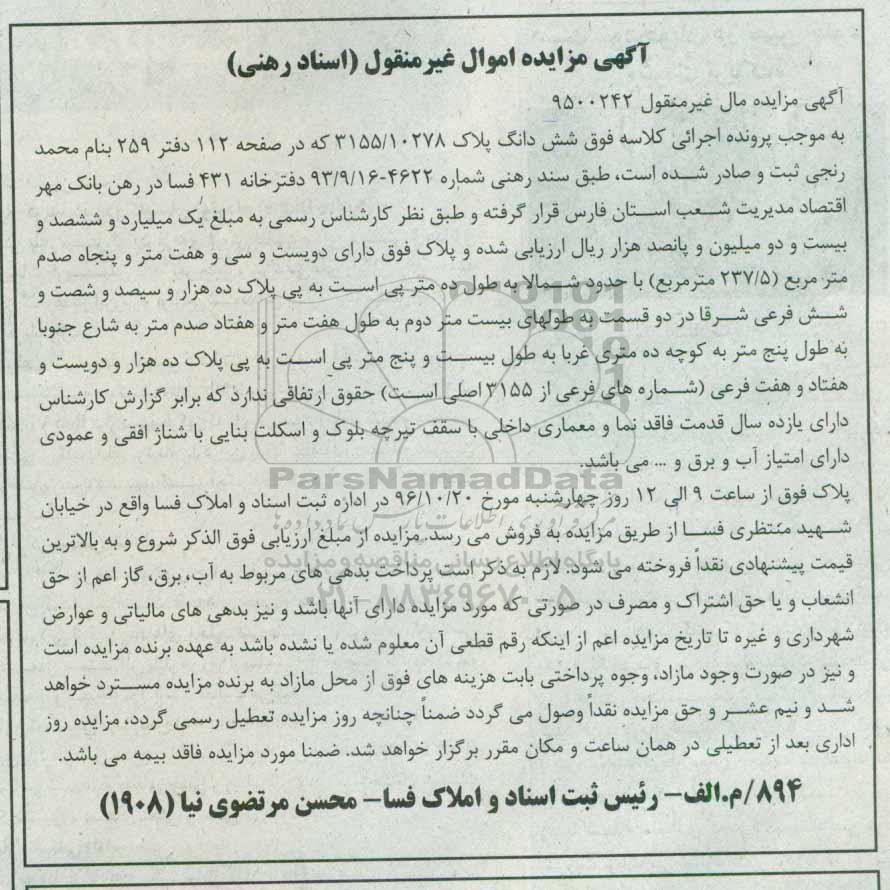 آگهی مزایده اموال غیرمنقول (اسناد رهنی)
آگهی مزایده مال غیرمنقول ۹۵۰۰۲۴۲
به موجب پرونده اجرائی کلاسه فوق شش دانگ پلاک ۳۱۵۵/۱۰۲۷۸ که در صفحه ۱۱۲ دفتر ۲۵۹ بنام محمد
رنجی ثبت و صادر شده است، طبق سند رهنی شماره ۴۶۲۲-۹۳/۹/۱۶ دفترخانه ۴۳۱ فسا در رهن بانک مهر
اقتصاد مدیریت شعب استان فارس قرار گرفته و طبق نظر کارشناس رسمی به مبلغ یک میلیارد و ششصد و
بیست و دو میلیون و پانصد هزار ریال ارزیابی شده و پلاک فوق دارای دویست و سی و هفت متر و پنجاه صدم
متر مربع (۲۳۷/۵ مترمربع) با حدود شمالا به طول ده متر پی است به پی پلاک ده هزار و سیصد و شصت و
شش فرعی شرقا در دو قسمت به طولهای بیست متر دوم به طول هفت متر و هفتاد صدم متر به شارع جنوبا
به طول پنج متر به کوچه ده متری غربا به طول بیست و پنج متر پی است به پی پلاک ده هزار و دویست و
هفتاد و هفت فرعی (شماره های فرعی از ۳۱۵۵ اصلی است) حقوق ارتفاقی ندارد که برابر گزارش کارشناس
دارای یازده سال قدمت فاقد نما و معماری داخلی با سقف تیرچه بلوک و اسکلت بنایی با شناژ افقی و عمودی
دارای امتیاز آب و برق و ... می باشد.
ParsNamadData
پلاک فوق از ساعت ۹ الی ۱۲ روز چهارشنبه مورخ ۹۶/۱۰/۲۰ در اداره ثبت اسناد و املاک فسا واقع در خیابان
شهید منتظری فسا از طریق مزایده به فروش می رسد. مزایده از مبلغ ارزیابی فوق الذکر شروع و به بالاترین
پایگاه اطلاع رسانی مناقصه و مزایده
قیمت پیشنهادی نقداً فروخته می شود. لازم به ذکر است پرداخت بدهی های مربوط به آب، برق، گاز اعم از حق
۰۲۱-۸۸۳۴۹۶۷۰-۵
انشعاب و یا حق اشتراک و مصرف در صورتی که مورد مزایده دارای آنها باشد و نیز بدهی های مالیاتی و عوارض
شهرداری و غیره تا تاریخ مزایده اعم از اینکه رقم قطعی آن معلوم شده یا نشده باشد به عهده برنده مزایده است
و نیز در صورت وجود مازاد، وجوه پرداختی بابت هزینه های فوق از محل مازاد به برنده مزایده مسترد خواهد
شد و نیم عشر و حق مزایده نقداً وصول می گردد ضمناً چنانچه روز مزایده تعطیل رسمی گردد، مزایده روز
اداری بعد از تعطیلی در همان ساعت و مکان مقرر برگزار خواهد شد. ضمنا مورد مزایده فاقد بیمه می باشد.
۸۹۴/م.الف- رئیس ثبت اسناد و املاک فسا- محسن مرتضوی نیا (۱۹۰۸)